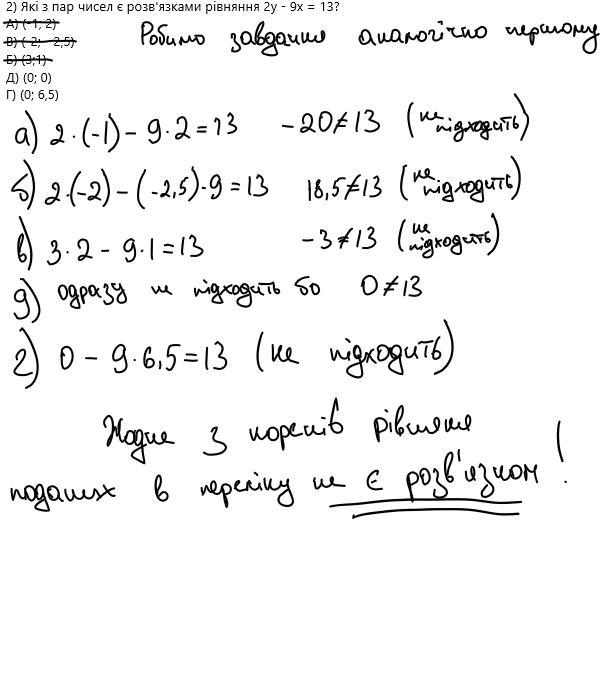 2) Які з пар чисел є розв'язками рівняння 2y - 9x = 13?
А) (-1; 2)
В) (-2; - 2,5)
Б) (3;1)
Д) (0; 0)
Г) (0; 6,5)
Робимо завдання аналогічно першому
а) 2·(-1) - 9·2=13 -20≠13 (не підходить)
б) 2·(-2) - (-2,5)·9=13 18,5≠13 (не підходить)
в) 3·2 - 9·1=13 -3≠13 (не підходить)
д) одразу не підходить бо 0≠13
г) 0 - 9·6,5=13 (не підходить)
Жодне з коренів рівняння
поданих в переліку не є розв'язком!